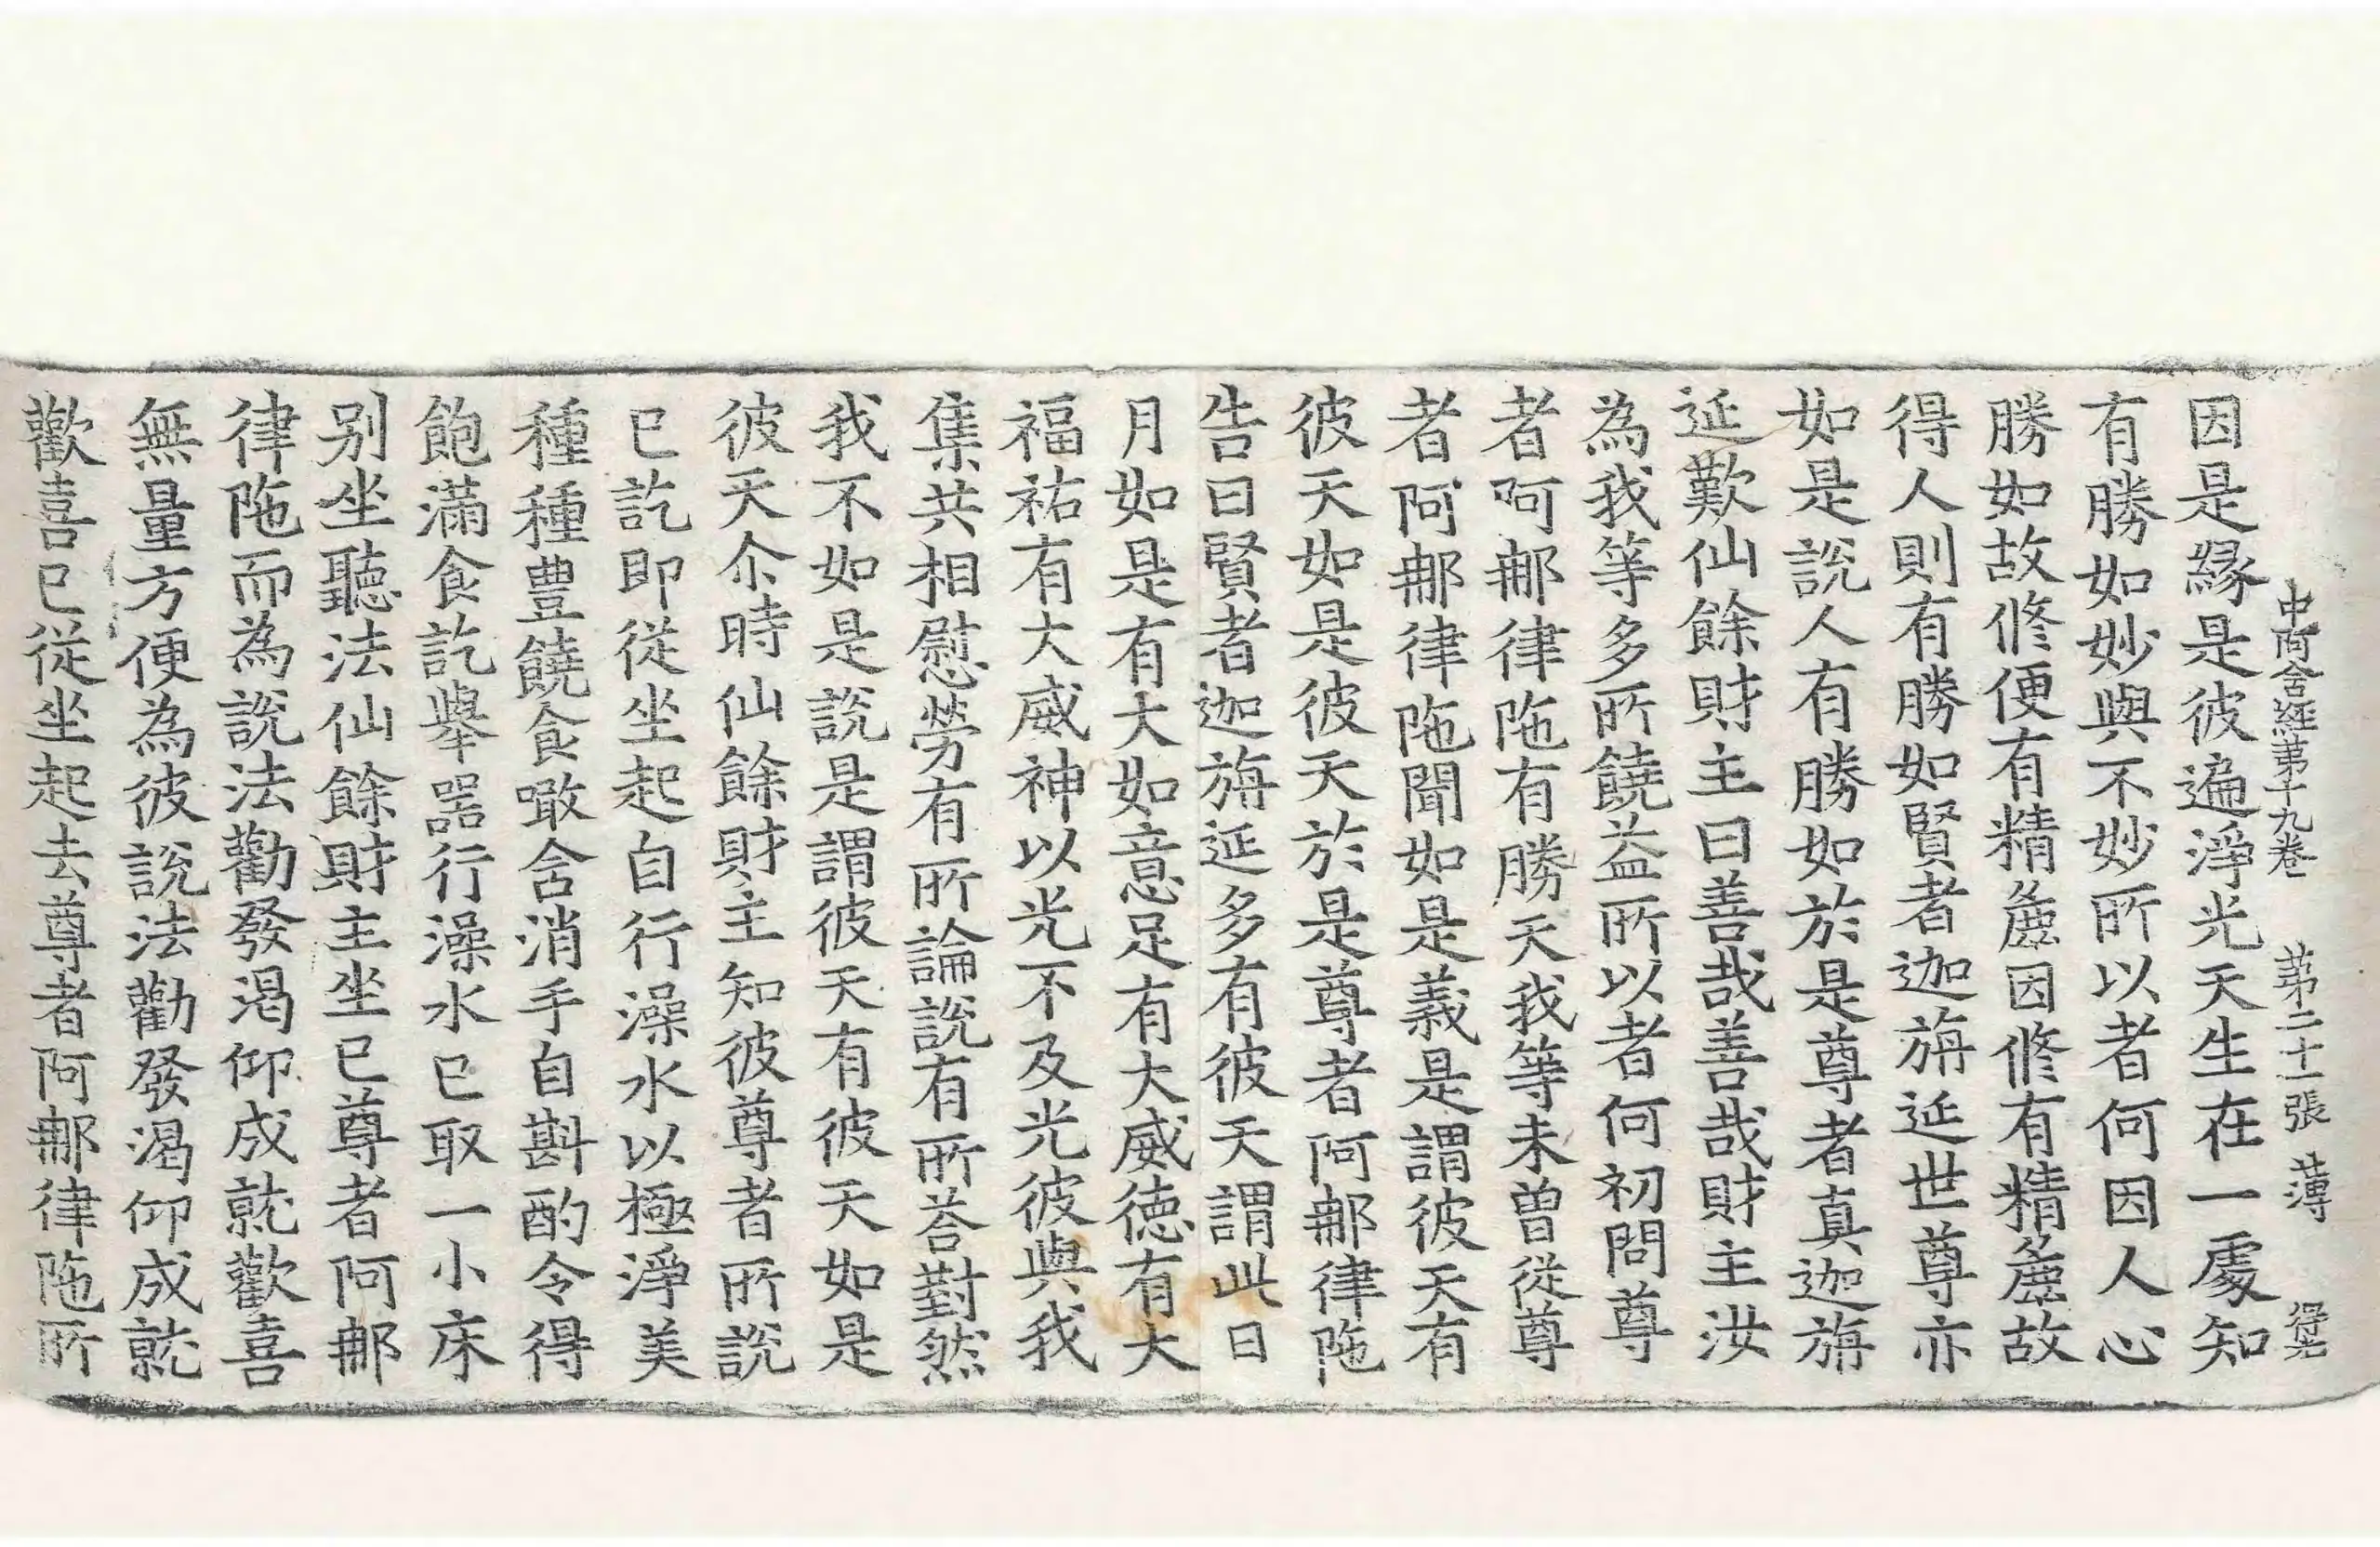 中阿含經第十九卷 第二十一張 薄 得先
因是緣是彼遍淨光天生在一處知
有勝如妙與不妙所以者何因人心
勝如故修便有精麁因修有精麁故
得人則有勝如賢者迦旃延世尊亦
如是說人有勝如於是尊者真迦旃
延歎仙餘財主曰善哉善哉財主汝
為我等多所饒益所以者何初問尊
者阿那律陁有勝天我等未曾從尊
者阿那律陁聞如是義是謂彼天有
彼天如是彼天於是尊者阿那律陁
告曰賢者迦旃延多有彼天謂此日
月如是有大如意足有大威德有大
福祐有大威神以光不及光彼與我
集共相慰勞有所論說有所荅對然
我不如是說是謂彼天有彼天如是
彼天尒時仙餘財主知彼尊者所說
已訖即從坐起自行澡水以極淨美
種種豊饒食噉含消手自斟酌令得
飽滿食訖舉器行澡水已取一小床
別坐聽法仙餘財主坐已尊者阿那
律陁而為說法勸發渴仰成就歡喜
無量方便為彼說法勸發渴仰成就
歡喜已從坐起去尊者阿那律陁所